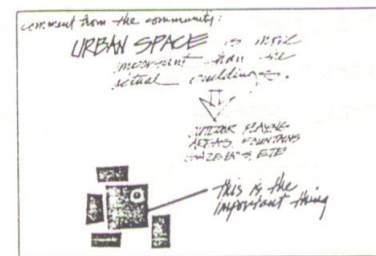 comment from the community:
URBAN SPACE is more
important than the
actual buildings.
OUTDOOR PLAYING
AREAS, FOUNTAINS
ETC
this is the
important thing